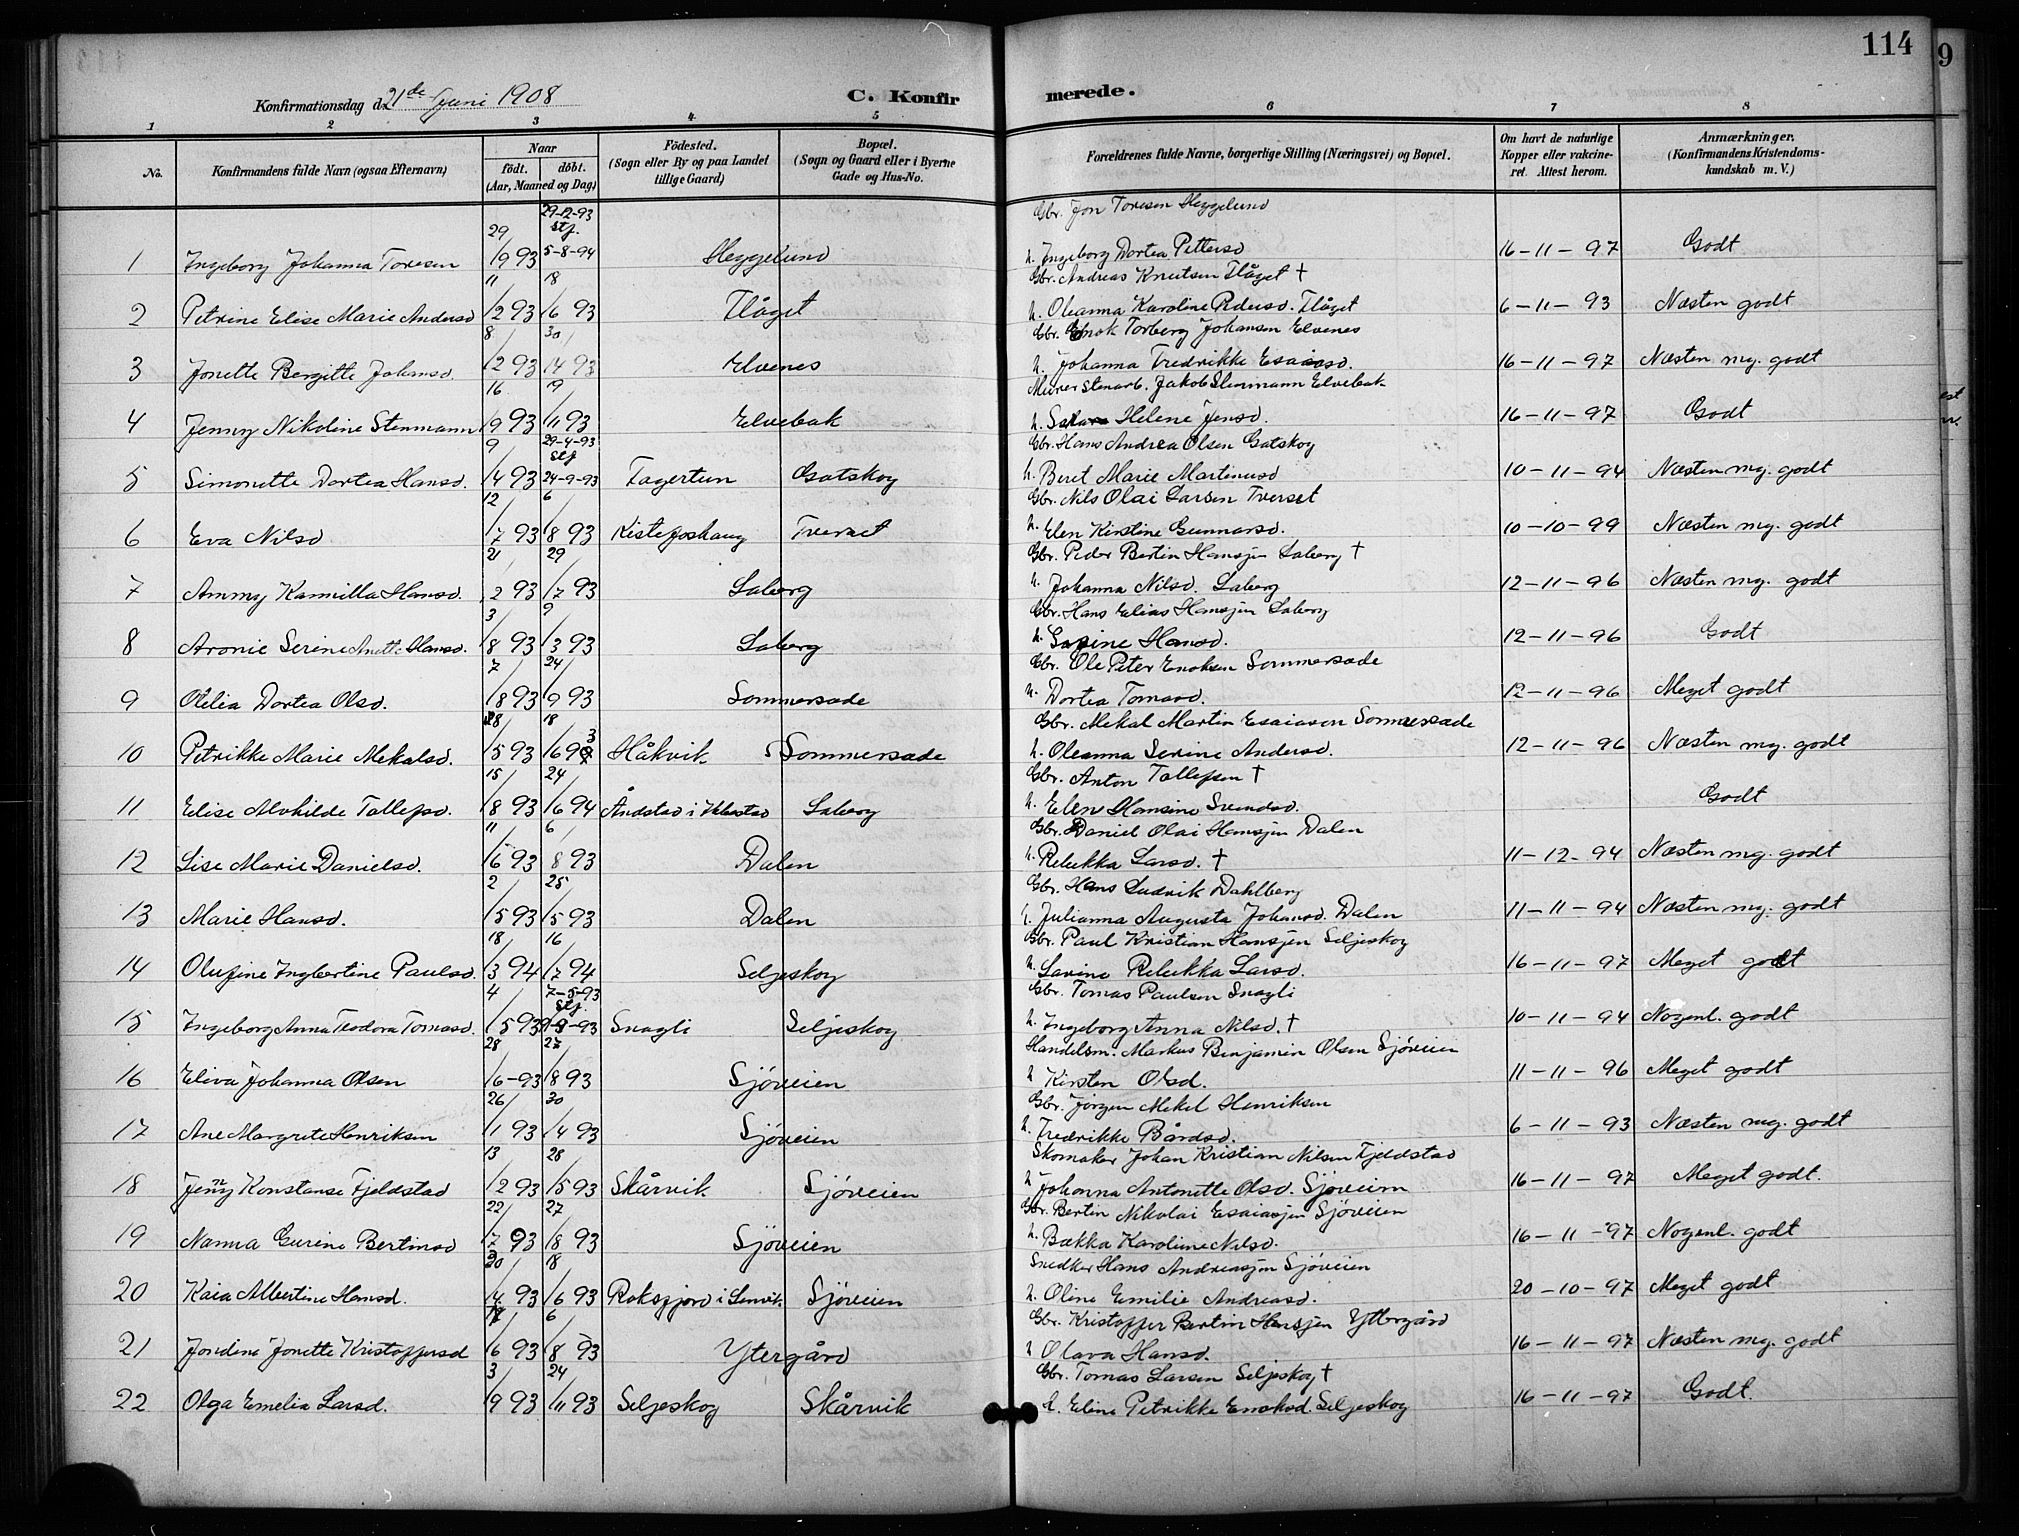 114
9
Konfirmationsdag d. 21de Juni 1908
C. Konfirmerede.
1 2 3 4 5 6 7 8
No.
Konfirmandens fulde Navn (ogsaa Efternavn)
Naar
födt. döbt.
(Aar, Maaned og Dag)
Födested.
(Sogn eller By og paa Landet tillige Gaard)
Bopæl.
(Sogn og Gaard eller i Byerne Gade og Hus-No.
Forældrenes fulde Navne, borgerlige Stilling (Næringsvei) og Bopæl.
Om havt de naturlige Kopper eller vakcineret. Attest herom.
Anmærkninger.
(Konfirmandens Kristendomskundskab m. V.)
29-12-93 Gbr. Jon Toresen Heggelund
29 stf.
1 Ingeborg Johanna Toresen /9 93 5-8-94 Heggelund h. Ingeborg Dortea Pettersd 16-11-97 Godt
11 18 Gbr. Andreas Knutsen Flåget †
2 Petrine Elise Marie Andersd /2 93 /6 93 Flåget h. Oleanna Karoline Pedersd. Flåget 6-11-93 Næsten godt
8 30 Gbr. Enok Torberg Johansen Elvenes
3 Jonette Bergitte Johansd. /2 93 /4 93 Elvenes h. Johanna Fredrikke Esaiasd. 16-11-97 Næsten mg. godt
16 19 Murer Stenarb. Jakob Stenmann Elvebak
4 Jenny Nikoline Stenmann /9 93 /11 93 Elvebak h. Helene Jensd. 16-11-97 Godt
9 29-4-93 stf Gbr. Hans Andrea Olsen Gatskog
5 Simonette Dortea Hansd. /4 93 24-9-93 Fagertun Gatskog h. Beret Marie Martinusd 10-11-94 Næsten mg. godt
12 6 Gbr. Nils Olai Larsen Tverset
6 Eva Nilsd /7 93 /8 93 Kistefoshaug Tverset h. Elen Kirstine Gunnarsd. 10-10-99 Næsten mg. godt
21 29 Gbr. Peder Bertin Hansjen Laberg †
7 Ammy Kamilla Hansd. /2 93 /7 93 Laberg h. Johanna Nilsd. Laberg 12-11-96 Næsten mg. godt
3 9 Gbr. Hans Elias Hansjen Laberg
8 Aronie Serine Anette Hansd. /8 93 /3 93 Laberg h. Hansd. 12-11-96 Godt
7 24 Gbr. Ole Peter Enoksen Sommersæde
9 Otelia Dortea Olsd. /8 93 /9 93 Sommersæde h. Dortea Tomasd. 12-11-96 Meget godt
28 18 Gbr. Mekal Martin Esaiasen Sommersæde
10 Petrikke Marie Mekalsd. /5 93 /6 93 Håkvik Sommersæde h. Oleanna Serine Andersd. 12-11-96 Næsten mg. godt
15 24 Gbr. Anton Tollefsen †
11 Elise Alvhilde Tollefsd. /8 93 /6 94 Åndstad i Ibbestad Laberg h. Elen Hansine Svendsd. Godt
11 6 Gbr. Daniel Olai Hansjen Dalen
12 Lise Marie Danielsd. /6 93 /8 93 Dalen h. Rebekka Larsd. † 11-12-94 Næsten mg. godt
2 25 Gbr. Hans Ludvik Dahlberg
13 Marie Hansd. /5 93 /5 93 Dalen h. Julianna Augusta Johansd. Dalen 11-11-94 Næsten mg. godt
18 16 Gbr. Paul Kristian Hansjen Seljeskog
14 Olufine Ingbertine Paulsd. /3 94 /7 94 Seljeskog h. Lavine Rebekka Larsd. 16-11-97 Meget godt
4 7-5-93 stf. Gbr. Tomas Paulsen Snagli
15 Ingeborg Anna Teodora Tomasd. /5 93 Snagli Seljeskog h. Ingeborg Anna Nilsd. † 10-11-94 Nogenl. godt
28 27 Handelsm. Markus Benjamin Olsen Sjöveien
16 Eliva Johanna Olsen /6-93 /8 93 Sjöveien h Kirsten Olsd. 11-11-96 Meget godt
26 30 Gbr. Jörgen Mekel Henriksen
17 Ane Margrete Henriksen /1 93 /4 93 Sjöveien h. Fredrikke Bårdsd. 6-11-93 Næsten mg. godt
13 28 Skomaker Johan Kristian Nilsen Fjeldstad
18 Jenny Konstanse Fjeldstad /2 93 /5 93 Skårvik Sjöveien h Johanna Antonette Olsd. Sjöveien 16-11-97 Meget godt.
22 27 Gbr. Bertin Nikolai Esaiasjen Sjöveien
19 Nanna Gurine Bertinsd /7 93 /8 93 Sjöveien h. Bækka Karoline Nilsd. 16-11-97 Nogenl. godt
30 18 Snedker Hans Andreasjen Sjöveien
20 Kaia Albertine Hansd. /4 93 /6 93 Roksfjord i Lenvik Sjöveien h. Oline Emilie Andreasd. 20-10-97 Meget godt
6 Gbr. Kristoffer Bertin Hansjen Yttergård
21 Jordine Jonette Kristoffersd /6 93 /8 93 Ytergård h Olava Hansd. 16-11-97 Næsten mg. godt
3 24 Gbr. Tomas Larsen Seljeskog †
22 Olga Emelia Larsd. /9 93 /11 93 Seljeskog Skårvik h. Eline Petrikke Enoksd. Seljeskog 16-11-97 Godt.